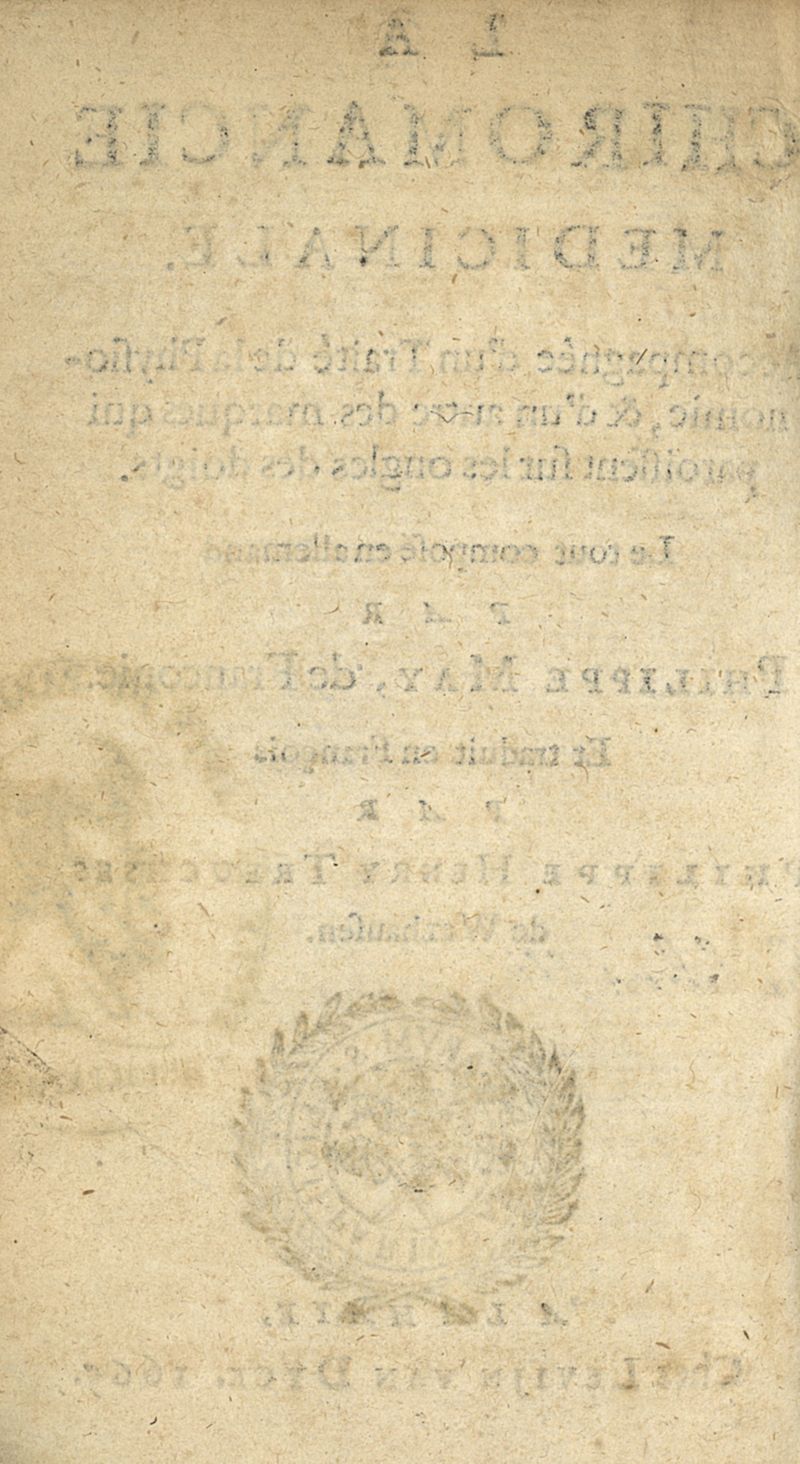 LA
CHIROMANCIE
MEDICINALE.
Accompagnée d'un Traité de la Phyſio-
nomie, & d'un autre des marques qui
paroiſſent ſur les ongles des doigts.
Le tout composé en allemand
PAR
PHILIPPE MAY, de Franconie.
Et traduit en François
PAR
PHILIPPE HENRY
de
A LA HAYE,
Chez LEVIJN VAN DYCK.